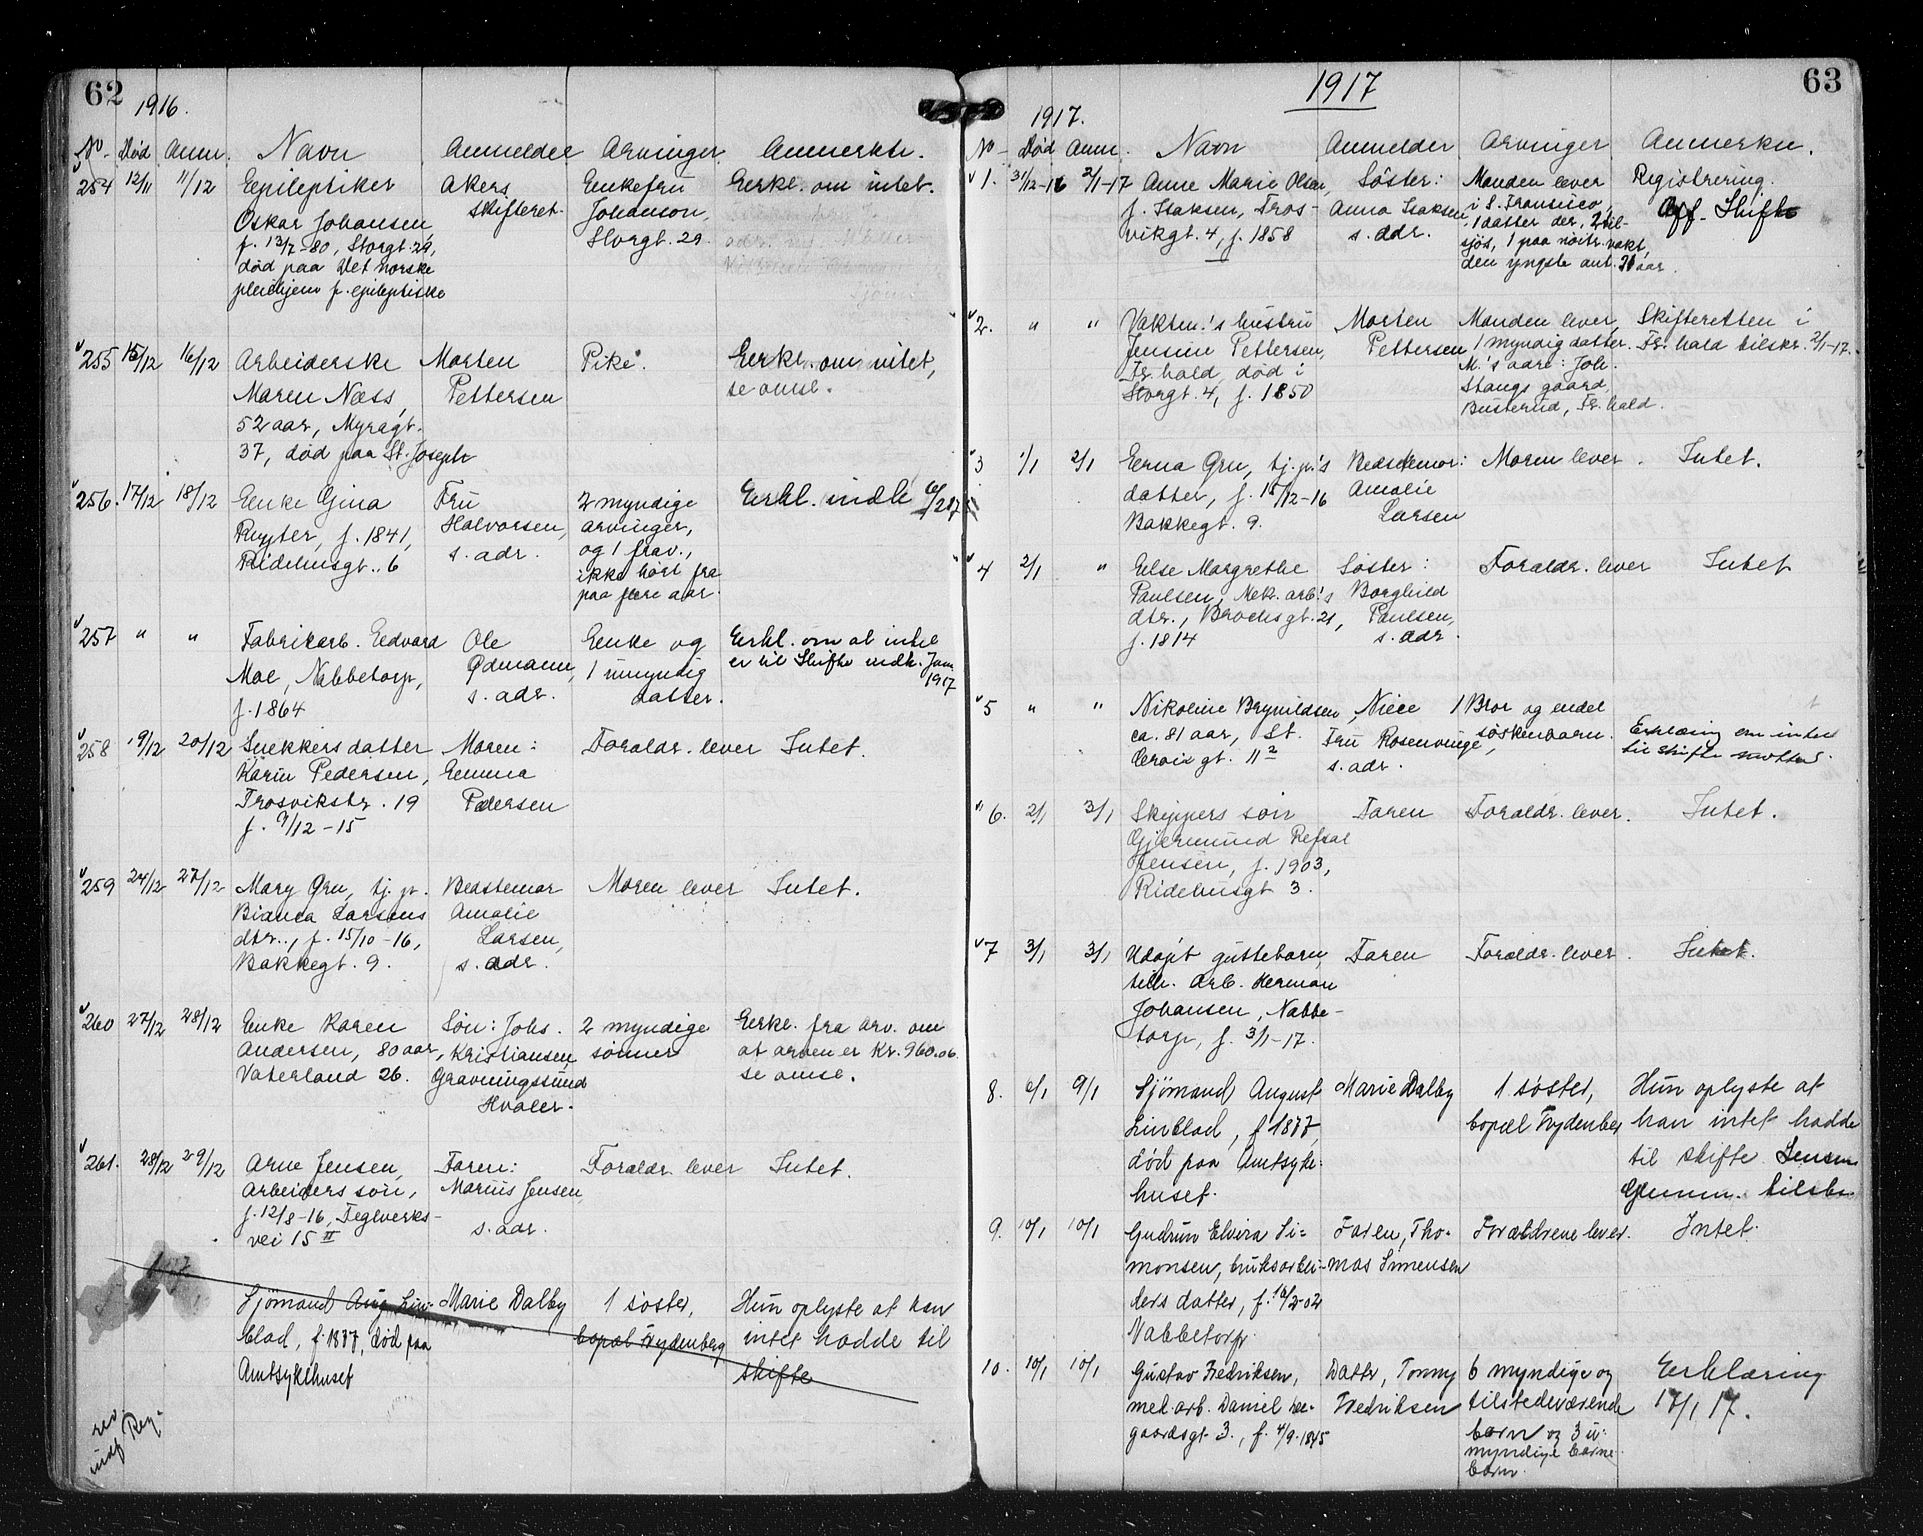 62
1916.
No Død Anm. Navn Anmelder Arvinger Anmerkn.
254 12/11 11/12 Epileptiker Akers Enkefru Erkl. om intet.
Oskar Johansen, skifteret. Johanson,
f. 13/7-80, Storgt. 29, Storgt. 29.
død paa Det norske
pleiehjem f. epileptiske
255 15/12 16/12 Arbeiderske Morten Pike. Erkl. om intet,
Maren Næss, Pettersen se omsl.
52 aar, Myragt.
37, død paa St. Joseph
256. 17/12 18/12 Enke Gina Fru 2 myndige Erkl. indk
Ruyter, f. 1841, Halvorsen, arvinger,
Ridehusgt. 6 s. adr. og 1 frav.,
ikke hørt fra
paa flere aar.
257 " " Fabrikarb. Edvard Ole Enke og Erkl. om at intet
Moe, Nabbetorp, Ødmann, 1 umyndig er til skifte indk. Jan.
f. 1864 s. adr. datter. 1917
258 19/12 20/12 Snekkers datter Moren: Forældr. lever Intet.
Karin Pedersen, Emma
Trosvikstr. 19 Pedersen
f. 9/12-15
259 24/12 27/12 Mary Gru, tj. p. Bedstemor Moren lever Intet.
Bianca Larsens Amalie
dtr., f. 15/10-16, Larsen,
Bakkegt. 9. s. adr.
260 27/12 28/12 Enke Karen Søn: Johs. 2 myndige Erkl. fra arv. om
Andersen, 80 aar, Kristiansen, sønner at arven er Kr. 960.06.
Vaterland 26. Gravningssund se omsl.
Hvaler.
261. 28/12 29/12 Arne Jensen, Faren: Forældr. lever Intet.
Arbeiders søn, Marius Jensen,
f. 12/8-16, Teglverks- s. adr.
vei 15 II
Sjømand Aug. Lin- Marie Dalby 1 søster, Hun oplyste at han
blad, f. 1877, død paa bopæl Frydenberg intet hadde til
Amtsykehuset skifte
Reg.
1917 63
1917.
No Død Anm. Navn Anmelder Arvinger Anmerkn.
1. 31/12-16 2/1-17 Anne Marie Olsen, Søster: Manden lever Registrering.
f. Isaksen, Tros- Anna Isaksen i S. Fransisco, Off. Skifte
vikgt. 4, f. 1858 s. adr. 1 datter der, 2 til-
sjøs, 1 paa nøitr. vakt,
den yngste ant. 21 aar.
2. " " Vaktm.'s hustru Morten Manden lever, Skifteretten i
Jensine Pettersen, Pettersen 1 myndig datter. Fr. hald tilskr. 2/1-17.
Fr. hald, død i M.'s adr: Joh.
Storgt. 4, f. 1850 Stangs gaard,
Busterud, Fr. hald.
3 1/1 2/1 Erna Gru, tj. p.'s Bedstemor: Moren lever. Intet.
datter, f. 15/12-16 Amalie
Bakkegt. 9. Larsen
4 2/1 " Else Margrethe Søster: Forældr. lever Intet
Paulsen, Mek. arb.'s Borghild
dtr., Brochsgt. 21, Paulsen,
f. 1814 s. adr.
5 " " Nikoline Brynildsen, Niece 1 Bror og endel
ca. 81 aar, St. Fru Rosenvinge, søskenbarn. Erklæring om intet
Croix gt. 11 2 s. adr. til skifte mottat.
6. 2/1 3/1 Skippers søn Faren Forældr. lever. Intet.
Gjermund Refsal
Jensen, f. 1903,
Ridehusgt 3.
7 3/1 3/1 Udøpt guttebarn, Faren Forældr. lever. Intet.
tilh. Arb. Herman
Johansen, Nabbe-
torp, f. 3/1-17.
8. 6/1 9/1 Sjømand August Marie Dalby 1 søster, Hun oplyste at
Linblad, f 1877, bopæl Frydenber han intet hadde
død paa Amtsyke- til skifte
huset.
9. 10/1 10/1 Gudrun Elvira Si- Faren, Tho- Forældrene lever. Intet.
monsen, bruksarbei- mas Simensen
ders datter, f. 16/2-02
Nabbetorp.
10. 10/1 10/1 Gustav Fredriksen, Datter, Tonny 6 myndige og Erklæring
mek. arb. Daniel Le- Fredriksen tilstedeværende 17/1 17.
gaardsgt. 3., f. 4/9.1845 børn og 3 u-
myndige barne-
børn.